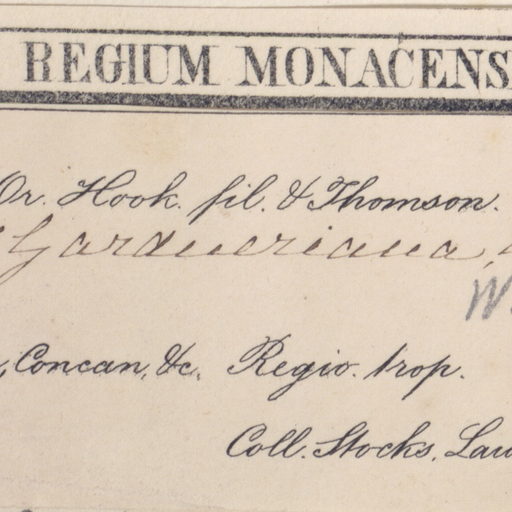 REGIUM MONACENS
Or. Hook. fil. & Thomson.
Gardneriana,
W.
, Concan, &c. Regio. trop.
Coll. Stocks, Law